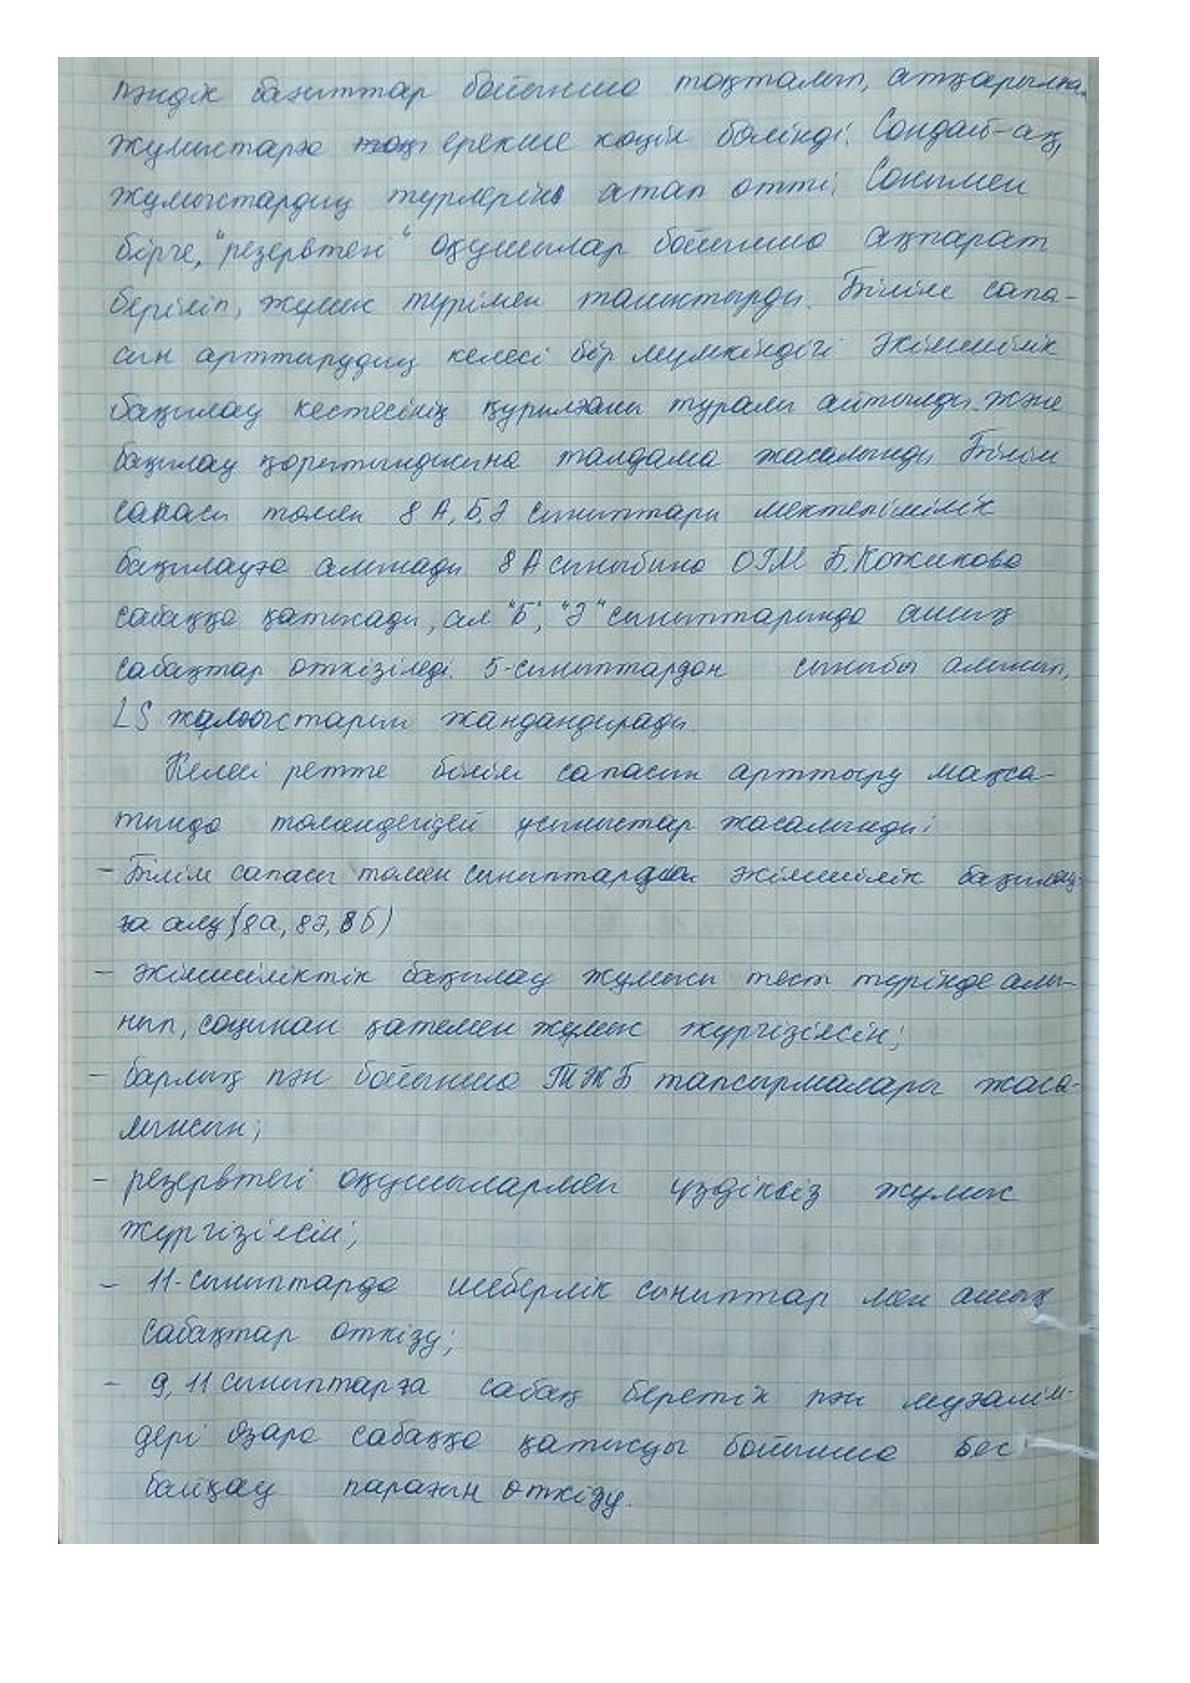 пәндік бағыттар бойынша тоқталып, атқарылған
жұмыстарға ерекше көңіл бөлінді. Сондай-ақ,
жұмыстардың түрлерін атап өтті. Сонымен
бірге, "резервтегі" оқушылар бойынша ақпарат
беріліп, жұмыс түрімен таныстырды. Білім сапа-
сын арттырудың келесі бір мүмкіндігі әкімшілік
бақылау кестесінің құрылғаны туралы айтылды және
бақылау қорытындысына талдама жасалынды. Білім
сапасы төмен 8 А, Б, Ә сыныптары мектепішілік
бақылауға алынады. 8 А сыныбына ОІМ Б. Кожикова
сабаққа қатысады, ал "Б", "Ә" сыныптарында ашық
сабақтар өткізіледі. 5-сыныптардан сыныбы алынып,
LS жұмыстарын жандандырады.
Келесі ретте білім сапасын арттыру мақса-
тында төмендегідей ұсыныстар жасалынды:
- Білім сапасы төмен сыныптарды әкімшілік бақылау-
ға алу (8а, 8ә, 8б)
- әкімшіліктік бақылау жұмысы тест түрінде алы-
нып, соңынан қатемен жұмыс жүргізілсін;
- барлық пән бойынша ТЖБ тапсырмалары жаса-
лынсын;
- резервтегі оқушылармен үздіксіз жұмыс
жүргізілсін;
- 11-сыныптарда шеберлік сыныптар мен ашық
сабақтар өткізу;
- 9, 11 сыныптарға сабақ беретін пән мұғалім-
дері өзара сабаққа қатысуы бойынша бес
байқау парағын өткізу.